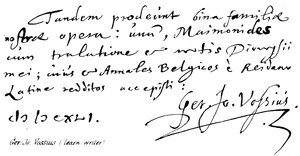 Tandem prodeunt bina familiæ
nostræ opera: unu, Maimonides
cum tralatione et notis Dionysii
mei; cuius et Annales Belgicos è Reidano
Latine redditos accepisti.
Ger. Jo. Vossius
Ger. Jo. Vossius ( learn writer